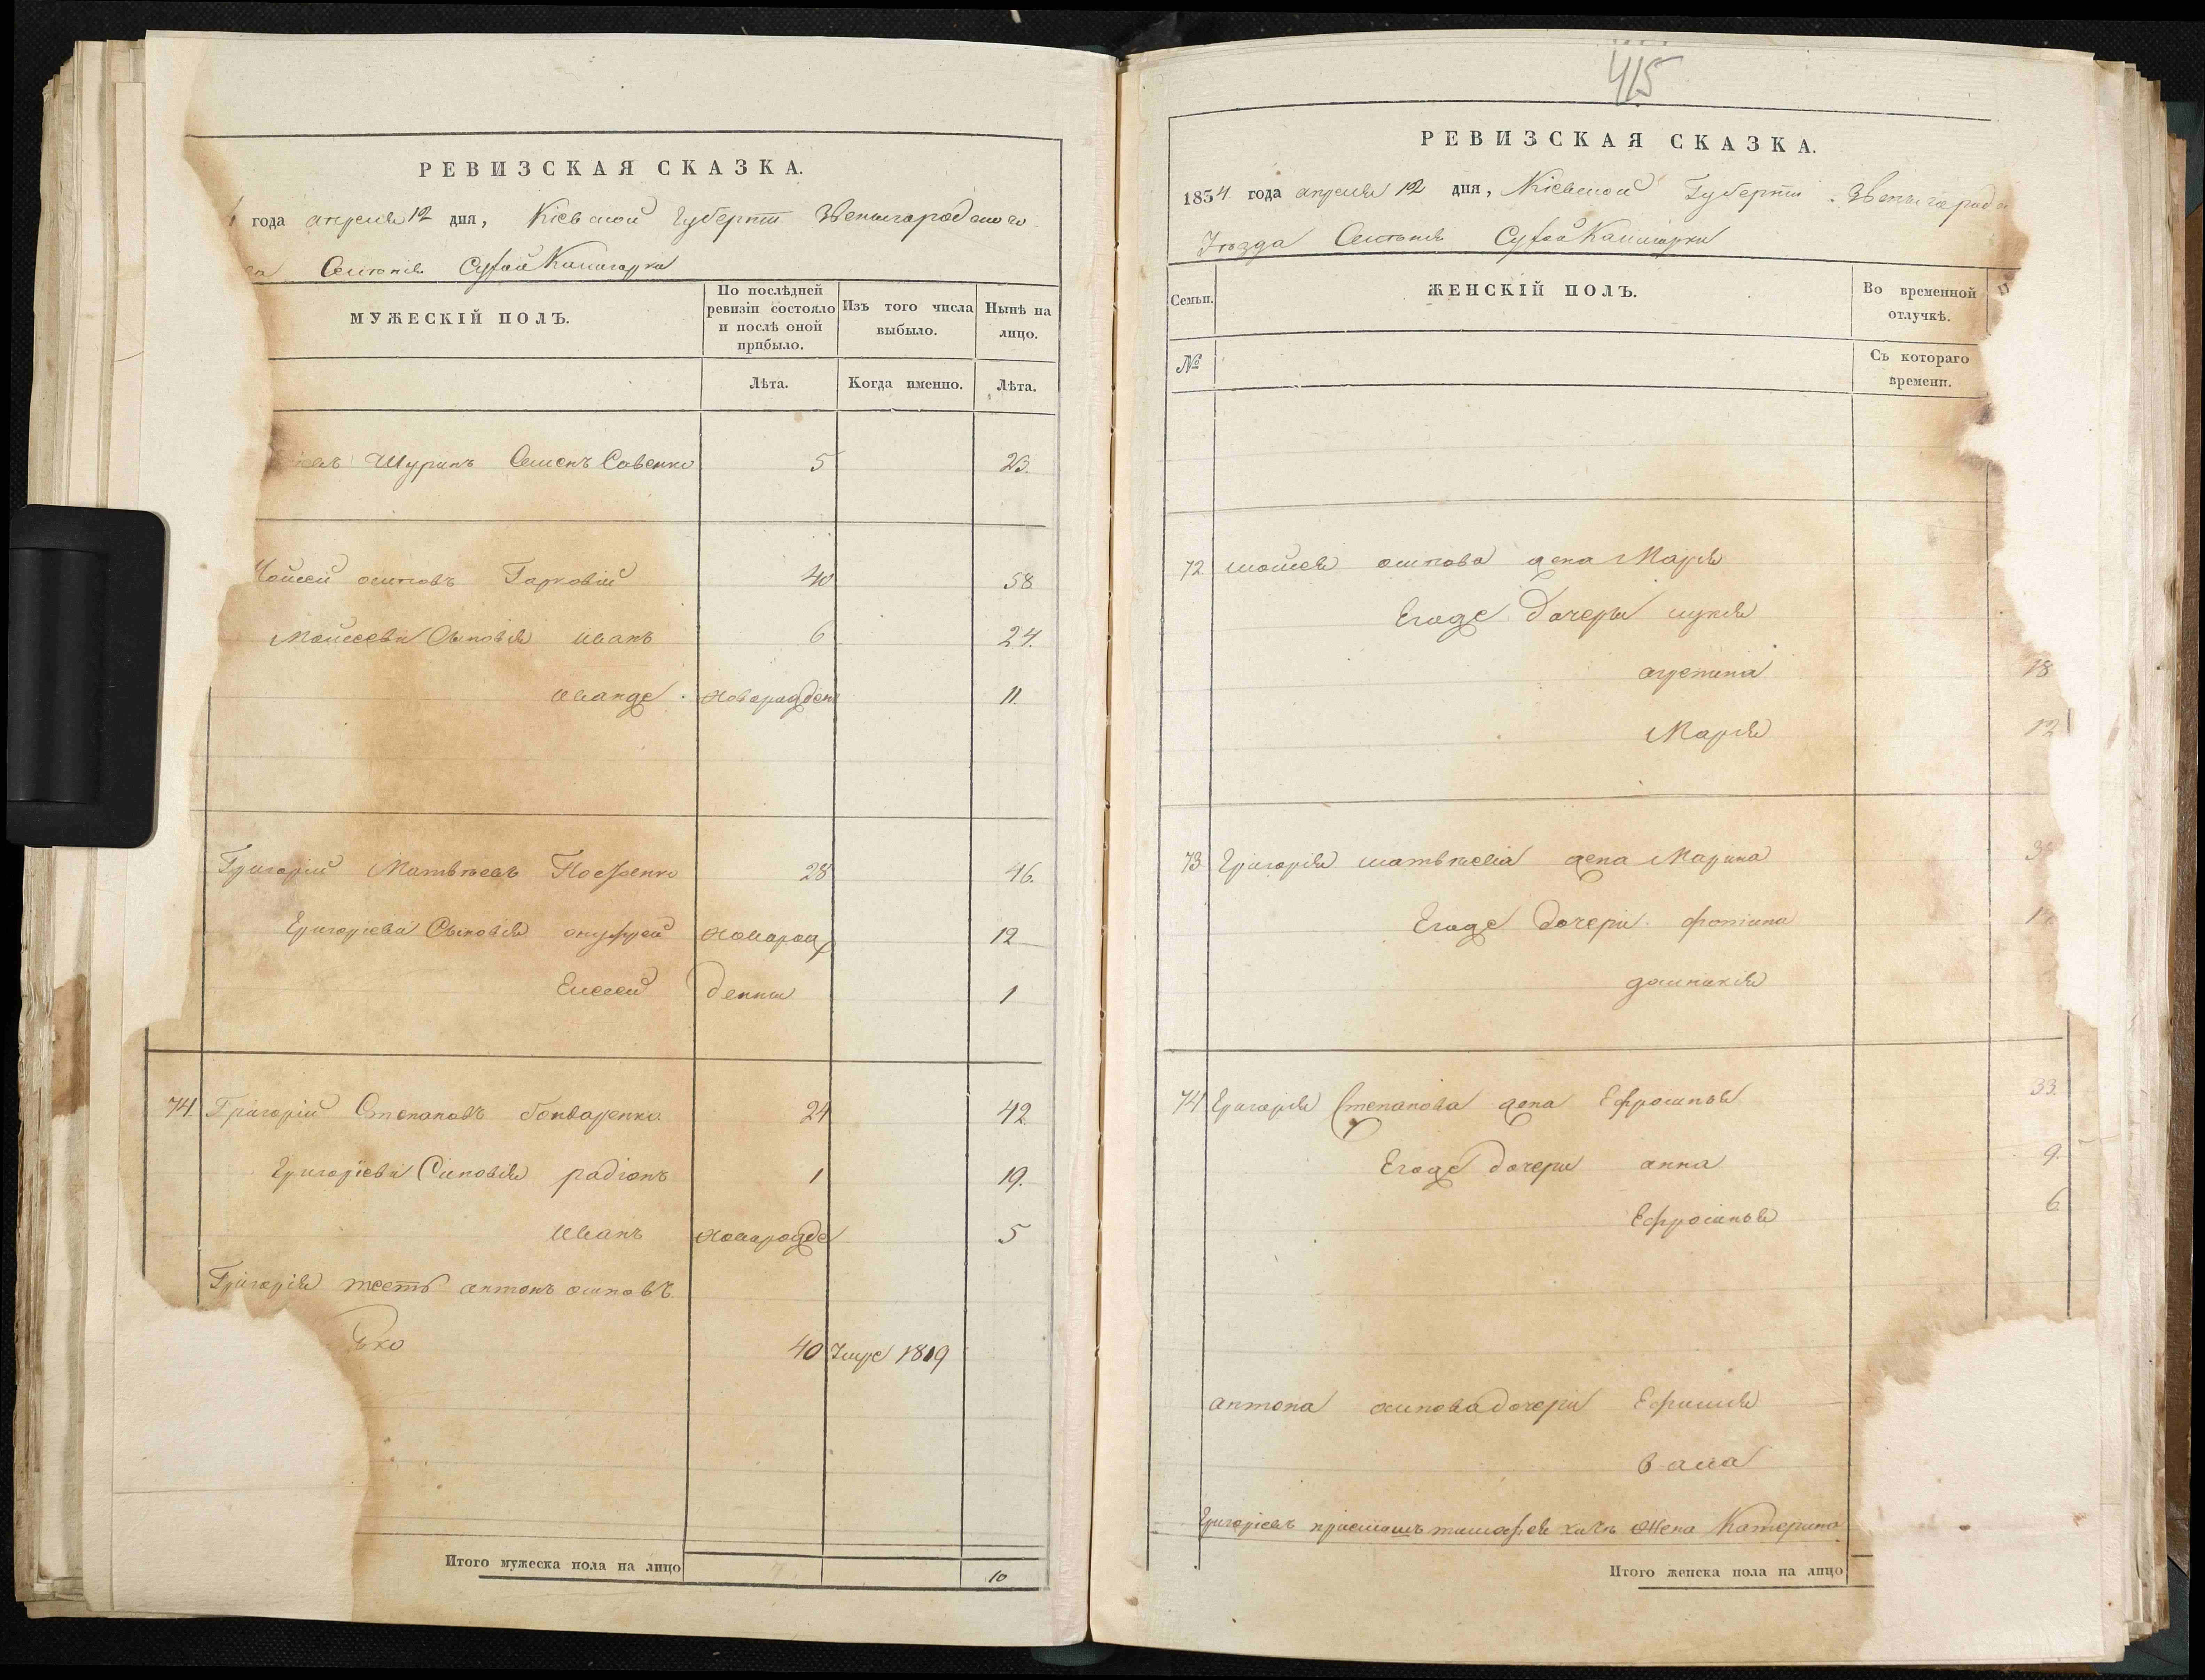 РЕВИЗСКАЯ СКАЗКА.
года апреля 12 дня, Кіевской губерніи Звенигородского
Селенія Сухой Калигорки
МУЖЕСКІЙ ПОЛЪ.
По послѣдней ревизіи состояло и послѣ оной прибыло.
Изъ того числа выбыло.
Нынѣ на лицо.
Лѣта.
Когда именно.
Лѣта.
Шуринъ Семенъ Савенко 5 23.
Мойсей осиповъ 40 58
Мойсеевы Сыновія иванъ 6 24.
иванже новорожден 11.
Григорій Матвѣевъ 28 46.
Григоріевы Сыновія онуфрей новорож 12
Елесей денны 1
74 Григорій Степановъ бондаренко 24 42
Григоріевы Сыновія радіонъ 1 19.
иванъ новорожде 5
Григорія тесть антонъ осиповъ
ко 40 Умре 1819
Итого мужеска пола на лицо 10
415
РЕВИЗСКАЯ СКАЗКА.
1834 года апреля 12 дня, Кіевской Губерніи Звенигородс
Уѣзда Селенія Сухой Калигорки
Семьи.
ЖЕНСКІЙ ПОЛЪ.
Во временной отлучкѣ.
№
Съ котораго времени.
72 мойсея осипова жена Марія
Егоже дочеры
18
Марія 12
73 Григорія матвѣева жена Марина
Егоже дочери фотіина
домникія
74 Григорія Степанова жена Ефросинья 33.
Егоже дочери анна 9.
Ефросинья 6
антона осипова дочери Ефимія
Григоріевъ жена Катерина
Итого женска пола на лицо